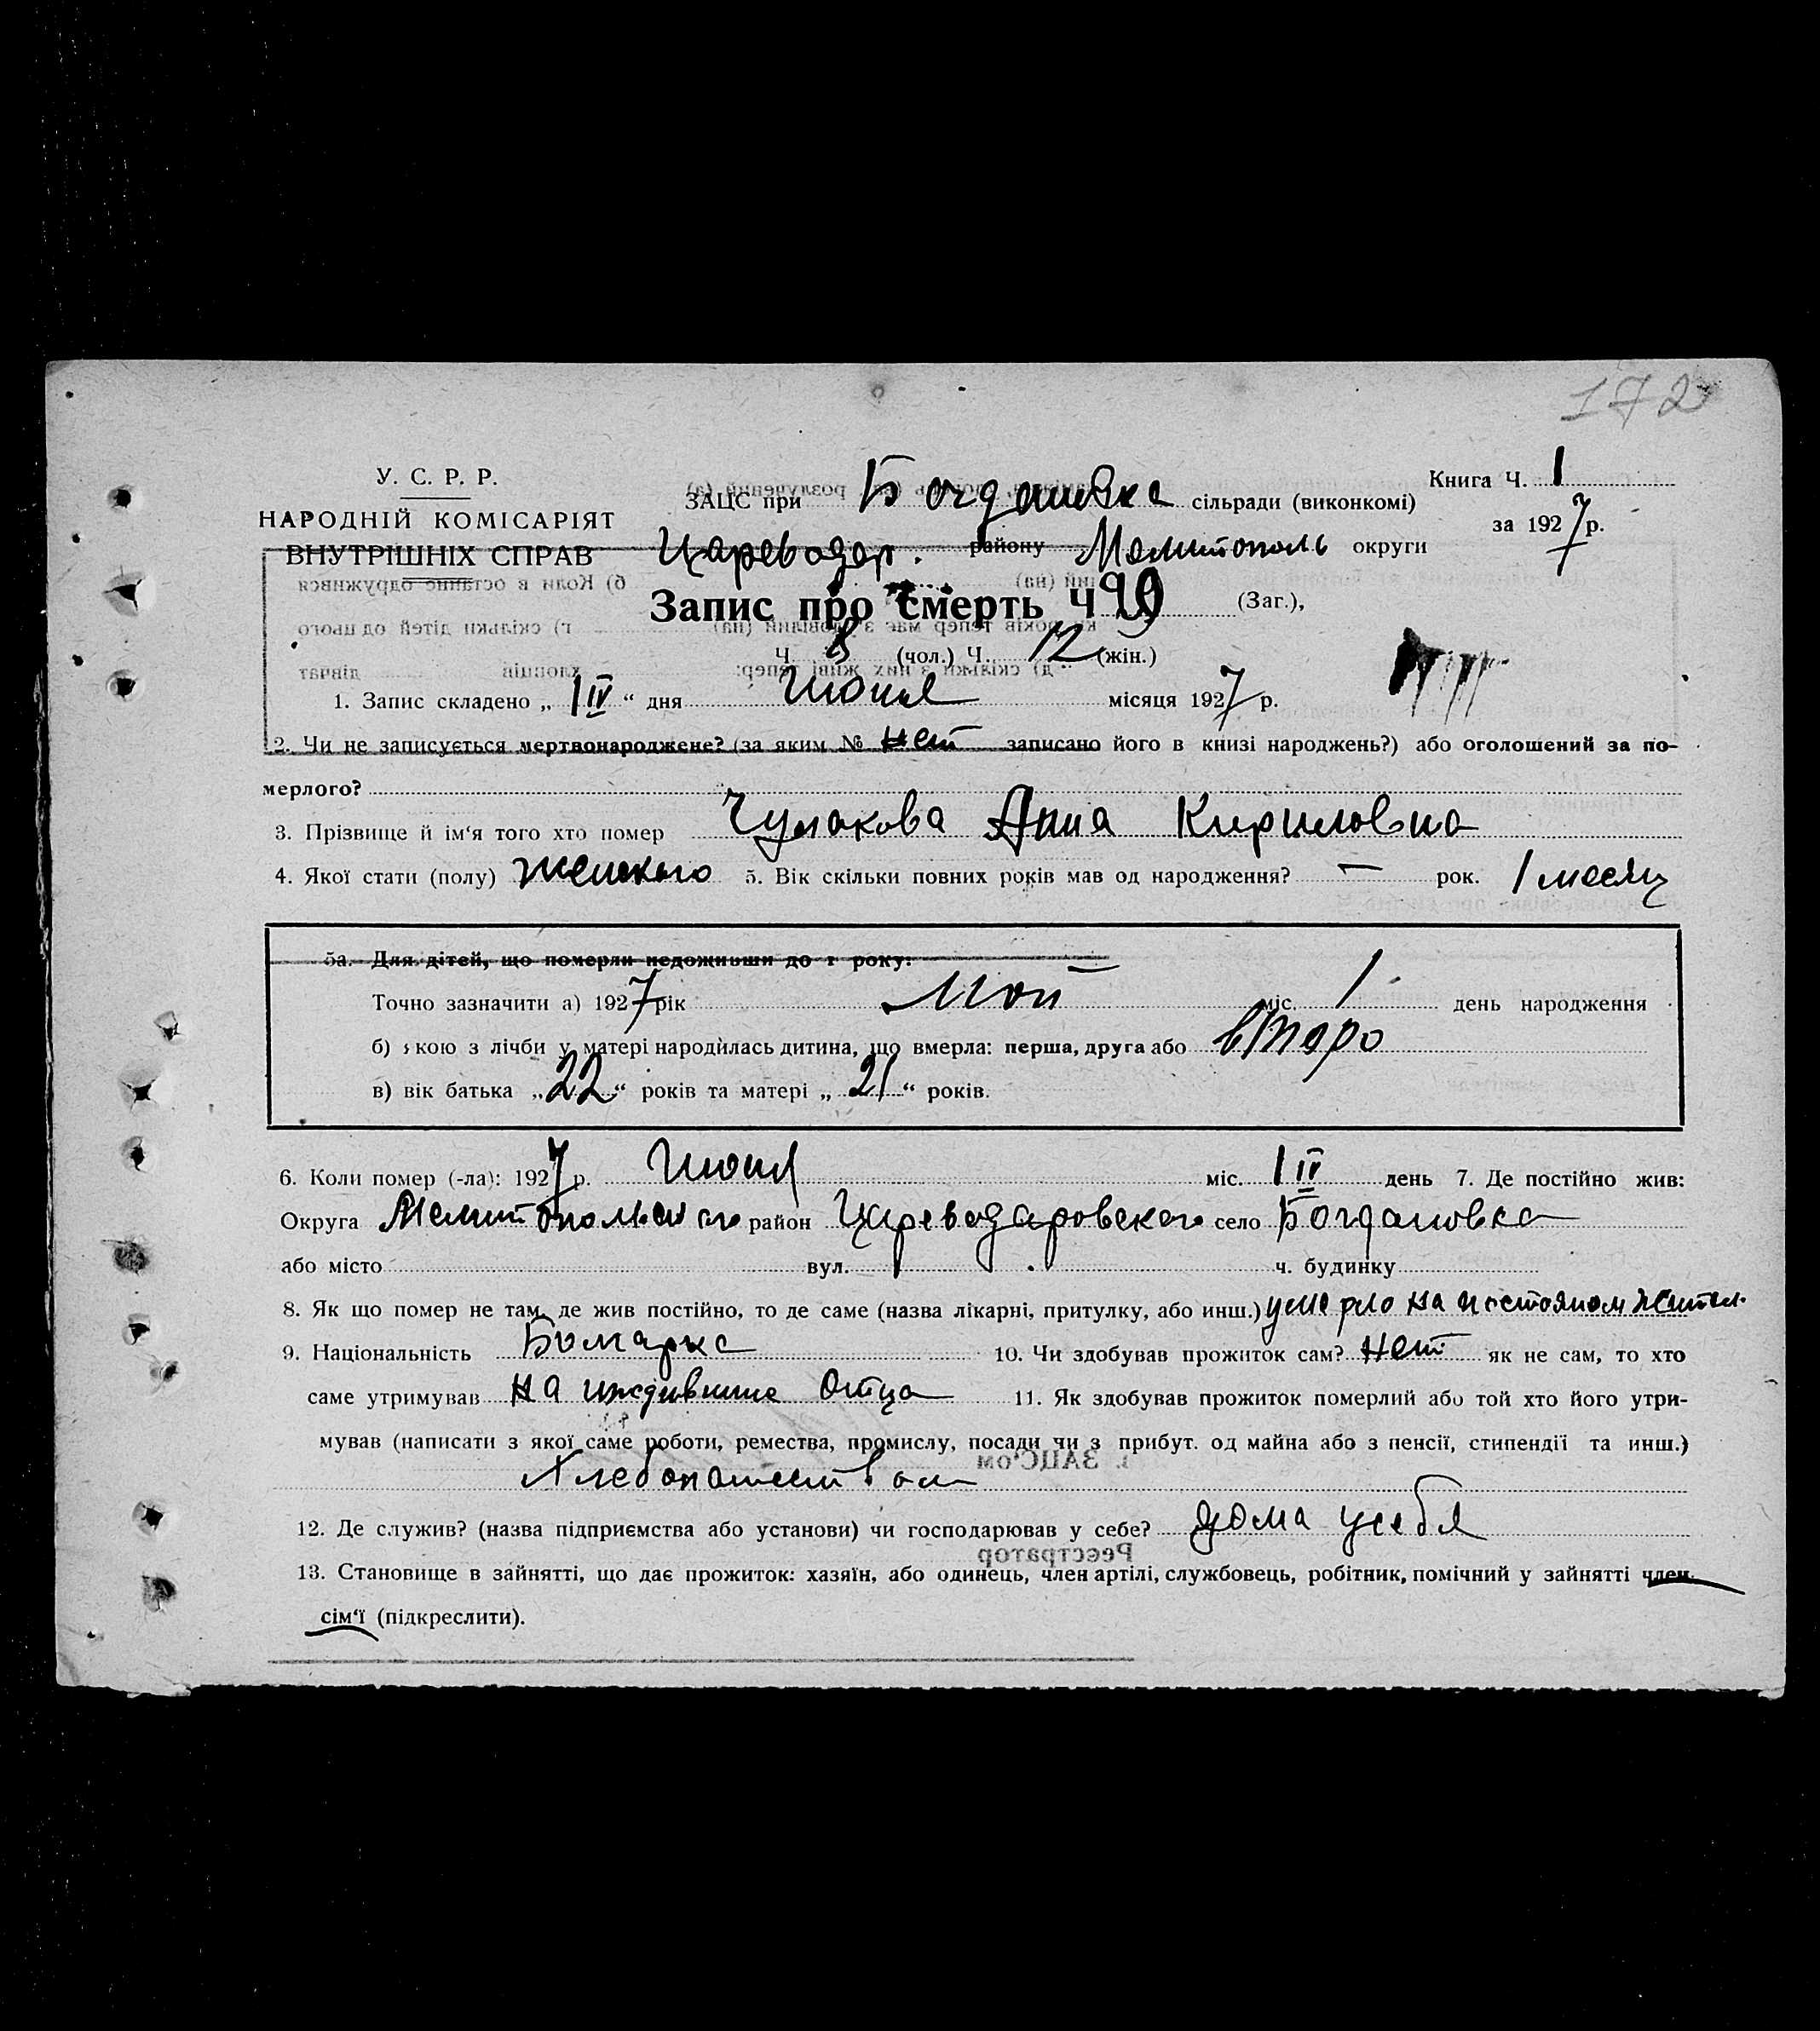 172
У. С. Р. Р.
НАРОДНІЙ КОМІСАРІЯТ
ВНУТРІШНІХ СПРАВ
ЗАЦС при Богдановка сільради (виконкомі)
Книга Ч. 1
за 1927 р.
Цареводар. району Мелитополь округи
Запис про смерть Ч (Заг.),
Ч. 8 (чол.) Ч. 12 (жін.)
1. Запис складено „ 1 IV “ дня Июня місяця 1927 р.
2. Чи не записується мертвонароджене? (за яким № нет записано його в книзі народжень?) або оголошений за по-
мерлого?
3. Прізвище й ім‘я того хто помер Чумакова Анна Кириловна
4. Якої стати (полу) женского 5. Вік скільки повних років мав од народження? — рок. 1 месяц
5а. Для дітей, що померли недоживши до 1 року:
Точно зазначити а) 1927 рік Мая міс. 1 день народження
б) якою з лічби у матері народилась дитина, що вмерла: перша, друга або второ
в) вік батька „ 22 “ років та матері „ 21 “ років.
6. Коли помер (-ла): 1927 р. Июня міс. 1 IV день 7. Де постійно жив:
Округа Мелитопольского район Цареводаровского село Богдановка
або місто вул. ч. будинку
8. Як що помер не там, де жив постійно, то де саме (назва лікарні, притулку, або инш.) умерло на постояном жител.
9. Національність Болгарка 10. Чи здобував прожиток сам? нет як не сам, то хто
саме утримував на иждивение отца 11. Як здобував прожиток померлий або той хто його утри-
мував (написати з якої саме роботи, ремества, промислу, посади чи з прибут. од майна або з пенсії, стипендії та инш.)
Хлебопашеством
12. Де служив? (назва підприємства або установи) чи господарював у себе? дома у себя
13. Становище в зайнятті, що дає прожиток: хазяїн, або одинець, член артілі, службовець, робітник, помічний у зайнятті член
сім‘ї (підкреслити).